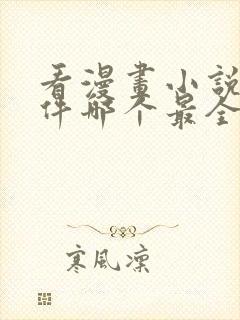 看漫畫小說
件哪个最全
寒風凜